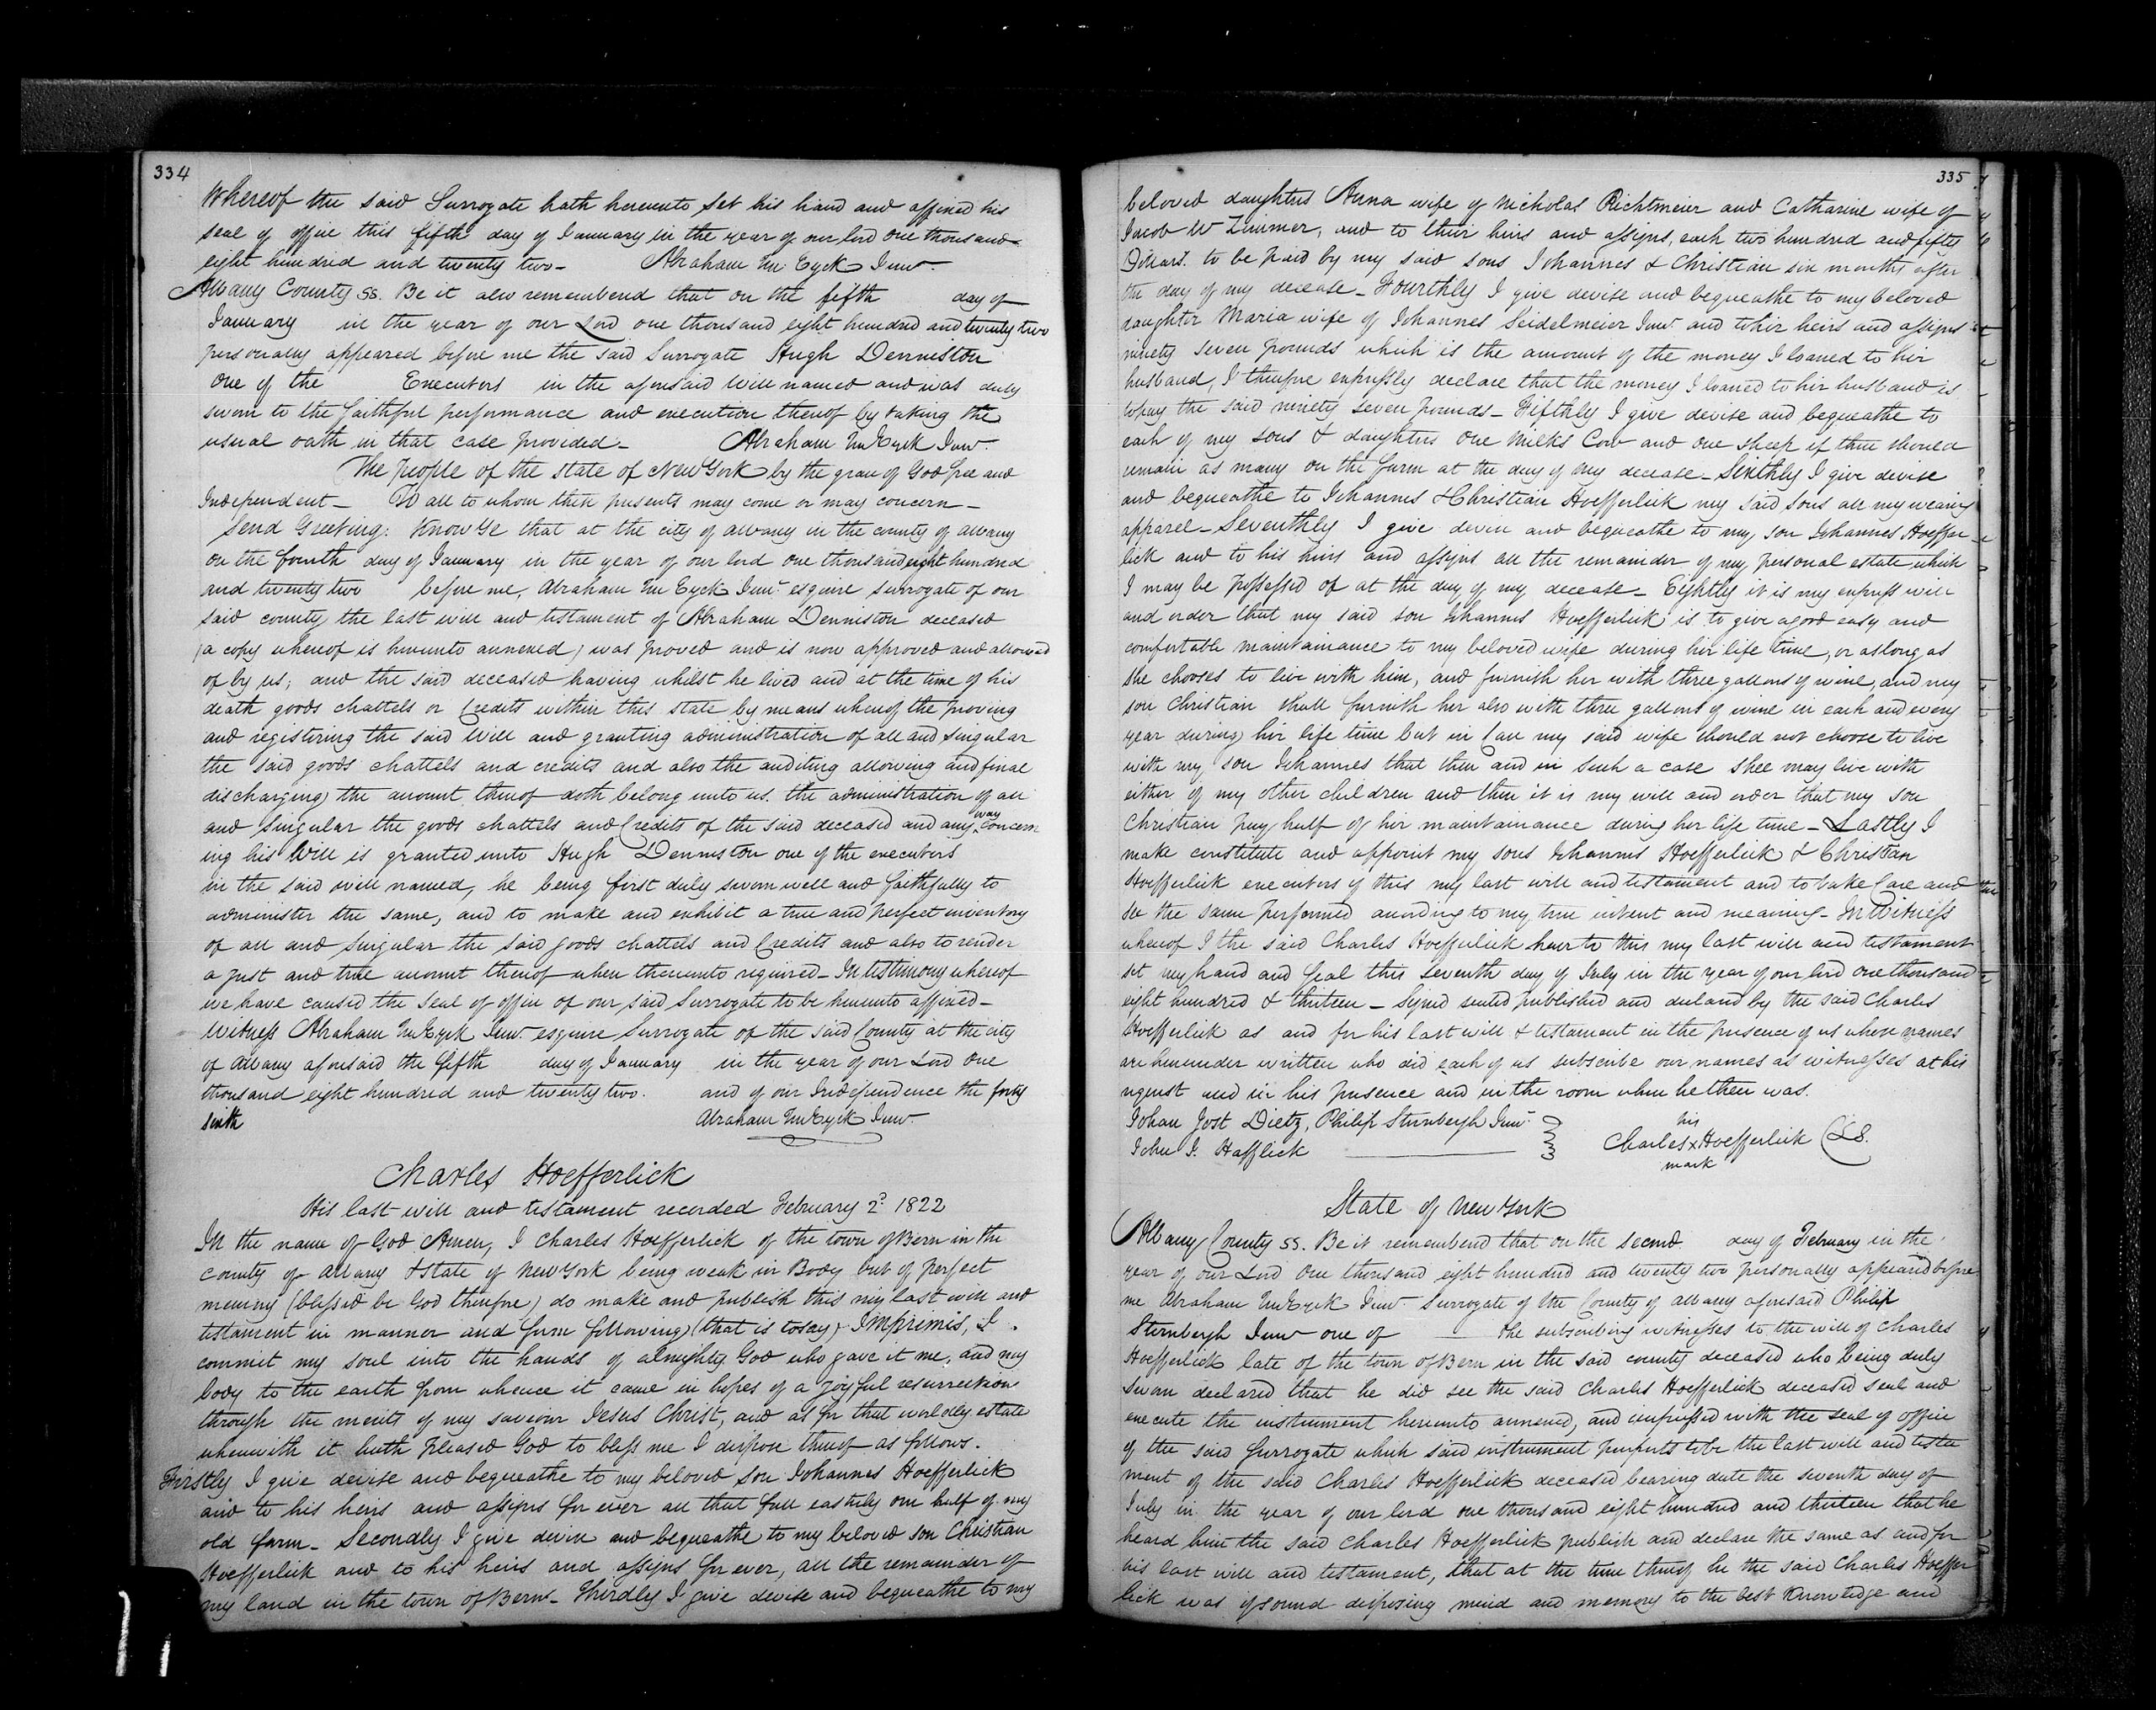 334
Whereof the said Surrogate hath hereunto set his hand and affixed his
seal of office this fifth day of January in the year of our lord one thousand
eight hundred and twenty two - Abraham Ten Eyck Junr.
Albany County ss. Be it also remembered that on the fifth day of
January in the year of our Lord one thousand eight hundred and twenty two
personally appeared before me the said Surrogate Hugh Denniston
one of the Executors in the aforesaid Will named and was duly
sworn to the faithful performance and execution thereof by taking the
usual oath in that case provided - Abraham Ten Eyck Junr.
The People of the state of New York by the grace of God free and
Independent - To all to whom these presents may come or may concern -
Send Greeting: Know Ye that at the city of albany in the county of albany
on the fourth day of January in the year of our lord one thousand eight hundred
and twenty two before me, Abraham Ten Eyck Junr. esquire surrogate of our
said county the last will and testament of Abraham Denniston deceased
(a copy whereof is hereunto annexed) was proved and is now approved and allowed
of by us; and the said deceased having whilst he lived and at the time of his
death goods chattels or Credits within this state by means whereof the proving
and registering the said Will and granting administration of all and singular
the said goods chattels and credits and also the auditing allowing and final
discharging the account thereof doth belong unto us. the administration of all
and singular the goods chattels and Credits of the said deceased and any way concern
ing his Will is granted unto Hugh Denniston one of the executors
in the said will named, he being first duly sworn well and faithfully to
administer the same, and to make and exhibit a true and perfect inventory
of all and singular the said goods chattels and Credits and also to render
a just and true account thereof when thereunto required - In testimony whereof
we have caused the Seal of office of our said Surrogate to be hereunto affixed -
Witness Abraham Ten Eyck Junr. esquire Surrogate of the said County at the city
of albany aforesaid the fifth day of January in the year of our Lord one
thousand eight hundred and twenty two. and of our Independence the forty
sixth Abraham Ten Eyck Junr.
Charles Hoefferlick
His last will and testament recorded February 2d 1822
In the name of God Amen, I Charles Hoefferlick of the town of Bern in the
county of albany & State of New York being weak in Body but of perfect
memory (blessed be God therefore) do make and publish this my last will and
testament in manner and form following (that is to say) Imprimis, I
commit my soul into the hands of almighty God who gave it me, and my
body to the earth from whence it came in hopes of a joyful resurrection
through the merits of my saviour Jesus Christ, and as for that worldly estate
wherewith it hath pleased God to bless me I dispose thereof as follows.
Firstly I give devise and bequeathe to my beloved son Johannes Hoefferlick
and to his heirs and assigns for ever all that full easterly one half of my
old farm - Secondly I give devise and bequeathe to my beloved son Christian
Hoefferlick and to his heirs and assigns for ever, all the remainder of
my land in the town of Bern - Thirdly I give devise and bequeathe to my
335
beloved daughters Anna wife of Nicholas Richtmeier and Catharine wife of
Jacob W Zimmer, and to their heirs and assigns, each two hundred and fifty
Dollars. to be paid by my said sons Johannes & Christian six months after
the day of my decease - Fourthly I give devise and bequeathe to my beloved
daughter Maria wife of Johannes Seidelmeier Junr. and to her heirs and assigns
ninety seven pounds which is the amount of the money I loaned to her
husband, I therefore expressly declare that the money I loaned to her husband is
to pay the said ninety seven pounds - Fifthly I give devise and bequeathe to
each of my sons & daughters one milks Cow and one sheep if there should
remain as many on the farm at the day of my decease - Sixthly I give devise
and bequeathe to Johannes & Christian Hoefferlick my said sons all my wearing
apparel - Seventhly I give devise and bequeathe to my son Johannes Hoeffer
lick and to his heirs and assigns all the remainder of my personal estate which
I may be possessed of at the day of my decease - Eightly it is my express will
and order that my said son Johannes Hoefferlick is to give a good easy and
comfortable maintainance to my beloved wife during her life time, or as long as
she chooses to live with him, and furnish her with three gallons of wine, and my
son Christian shall furnish her also with three gallons of wine in each and every
year during her life time but in Case my said wife should not choose to live
with my son Johannes that then and in such a case shee may live with
either of my other children and then it is my will and order that my son
Christian pay half of her maintainance during her life time - Lastly I
make constitute and appoint my sons Johannes Hoefferlick & Christian
Hoefferlick executors of this my last will and testament and to take Care and
see the same performed according to my true intent and meaning - In Witness
whereof I the said Charles Hoefferlick have to this my last will and testament
set my hand and Seal this seventh day of July in the year of our lord one thousand
eight hundred & thirteen - Signed sealed published and declared by the said Charles
Hoefferlick as and for his last will & testament in the presence of us whose names
are hereunder written who did each of us subscribe our names as witnesses at his
request and in his presence and in the room where he then was.
Johan Jost Dietz, Philip Sternbergh Junr.
John J. Hafflick
his
Charles x Hoefferlick (LS.
mark
State of New York
Albany County ss. Be it remembered that on the second day of February in the
year of our Lord one thousand eight hundred and twenty two personally appeared before
me Abraham Ten Eyck Junr. Surrogate of the County of albany aforesaid Philip
Sternbergh Junr one of the subscribing witnesses to the will of Charles
Hoefferlick late of the town of Bern in the said county deceased who being duly
sworn declared that he did see the said Charles Hoefferlick deceased seal and
execute the instrument hereunto annexed, and impressed with the seal of office
of the said Surrogate which said instrument purports to be the last will and testa
ment of the said Charles Hoefferlick deceased bearing date the seventh day of
July in the year of our lord one thousand eight hundred and thirteen that he
heard him the said Charles Hoefferlick publish and declare the same as and for
his last will and testament, that at the time thereof he the said Charles Hoeffer
lick was of sound disposing mind and memory to the best knowledge and